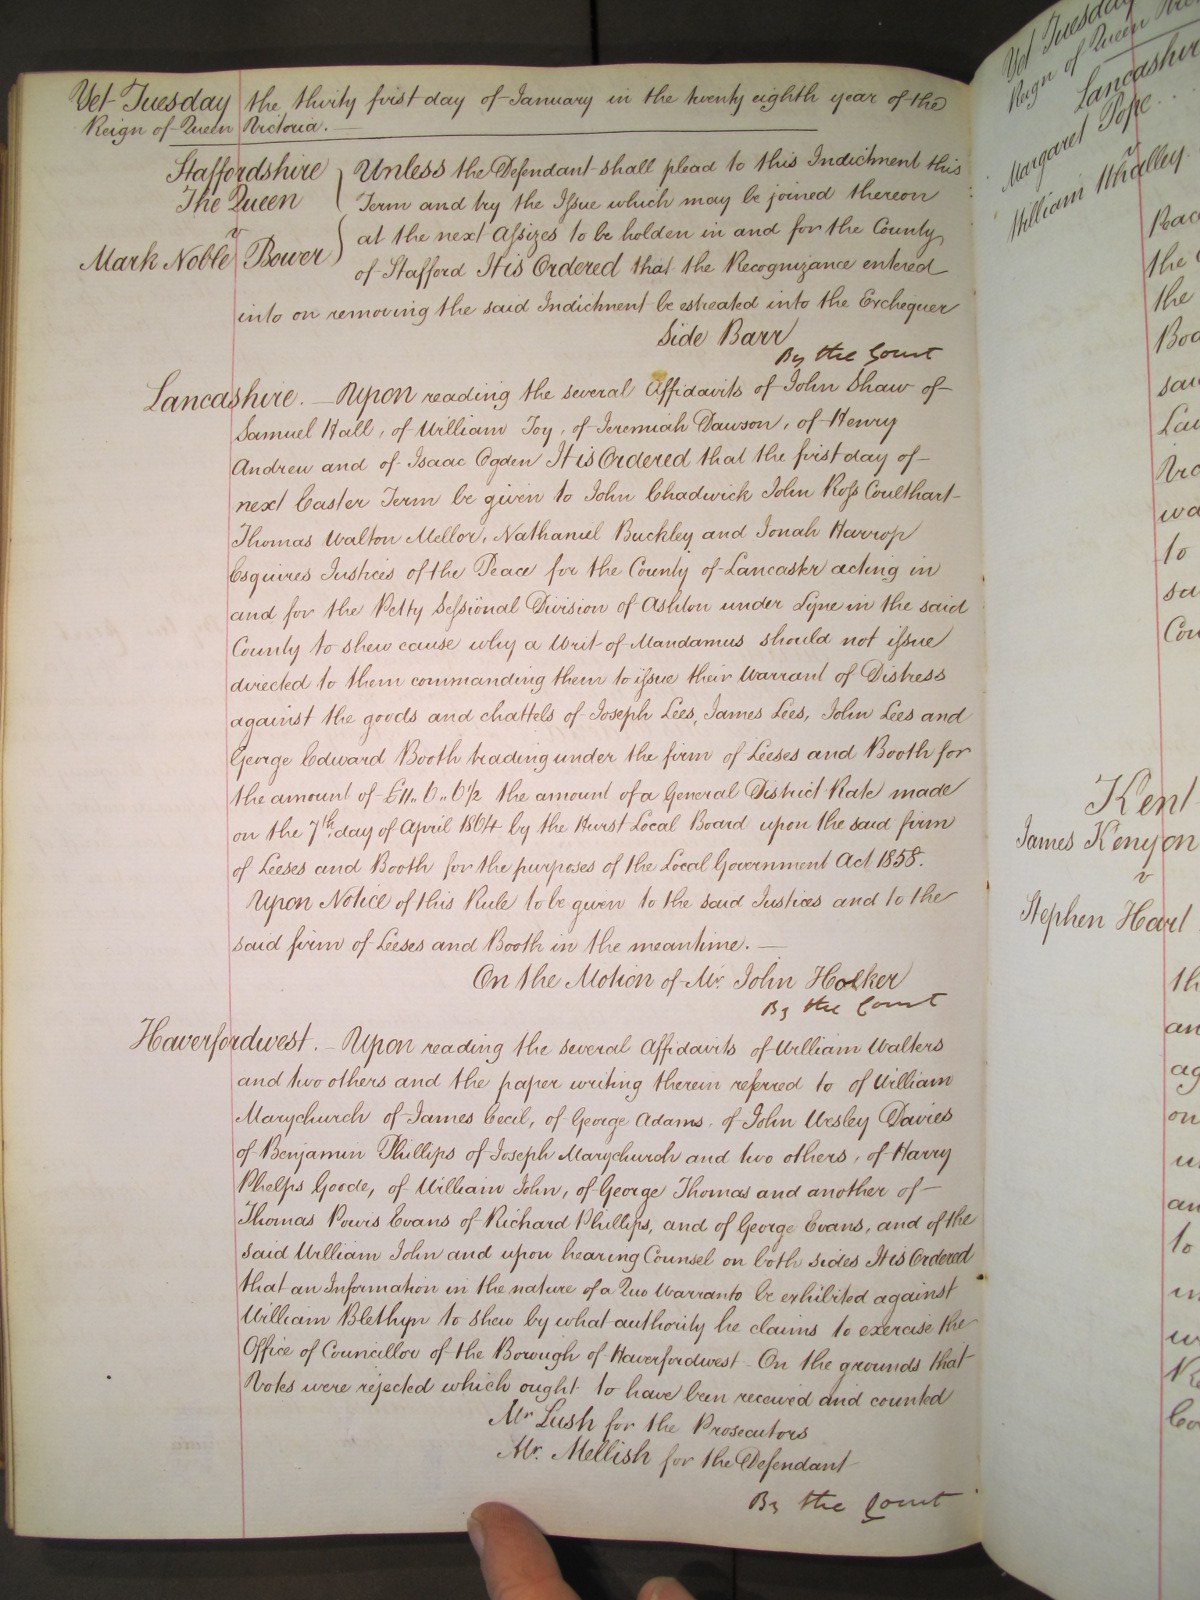 Yet Tuesday the thirty first day of January in the twenty eighth year of the
Reign of Queen Victoria.
Staffordshire
The Queen
v
Mark Noble Bower
Unless the Defendant shall plead to this Indictment this
Term and try the Issue which may be joined thereon
at the next Assizes to be holden in and for the County
of Stafford It is Ordered that the Recognizance entered
into on removing the said Indictment be estreated into the Exchequer
Side Barr
By the Court
Lancashire. — Upon reading the several Affidavits of John Shaw of
Samuel Hall, of William Toy, of Jeremiah Dawson, of Henry
Andrew and of Isaac Ogden It is Ordered that the first day of
next Easter Term be given to John Chadwick John Ross Coulthart
Thomas Walton Mellor, Nathaniel Buckley and Jonah Harrop
Esquires Justices of the Peace for the County of Lancaster acting in
and for the Petty Sessional Division of Ashton under Lyne in the said
County to shew cause why a Writ of Mandamus should not issue
directed to them commanding them to issue their Warrant of Distress
against the goods and chattels of Joseph Lees, James Lees, John Lees and
George Edward Booth trading under the firm of Leeses and Booth for
the amount of £11.. 6.. 6½ the amount of a General District Rate made
on the 7th. day of April 1864 by the Hurst Local Board upon the said firm
of Leeses and Booth for the purposes of the Local Government Act 1858.
Upon Notice of this Rule to be given to the said Justices and to the
said firm of Leeses and Booth in the meantime. —
On the Motion of Mr. John Holker
By the Court
Haverfordwest. — Upon reading the several Affidavits of William Walters
and two others and the paper writing therein referred to of William
Marychurch of James Cecil, of George Adams, of John Wesley Davies
of Benjamin Phillips of Joseph Marychurch and two others, of Harry
Phelps Goode, of William John, of George Thomas and another of
Thomas Powis Evans of Richard Phillips, and of George Evans, and of the
said William John and upon hearing Counsel on both sides It is Ordered
that an Information in the nature of a Quo Warranto be exhibited against
William Blethyn to shew by what authority he claims to exercise the
Office of Councillor of the Borough of Haverfordwest On the grounds that
Votes were rejected which ought to have been received and counted
Mr Lush for the Prosecutors
Mr. Mellish for the Defendant
By the Court
Yet Tuesday
Reign of Queen
Lancashire
Margaret Pope
v
William Whalley
the
the
said
to
Kent
James Kenyon
v
Stephen Hart
on
to